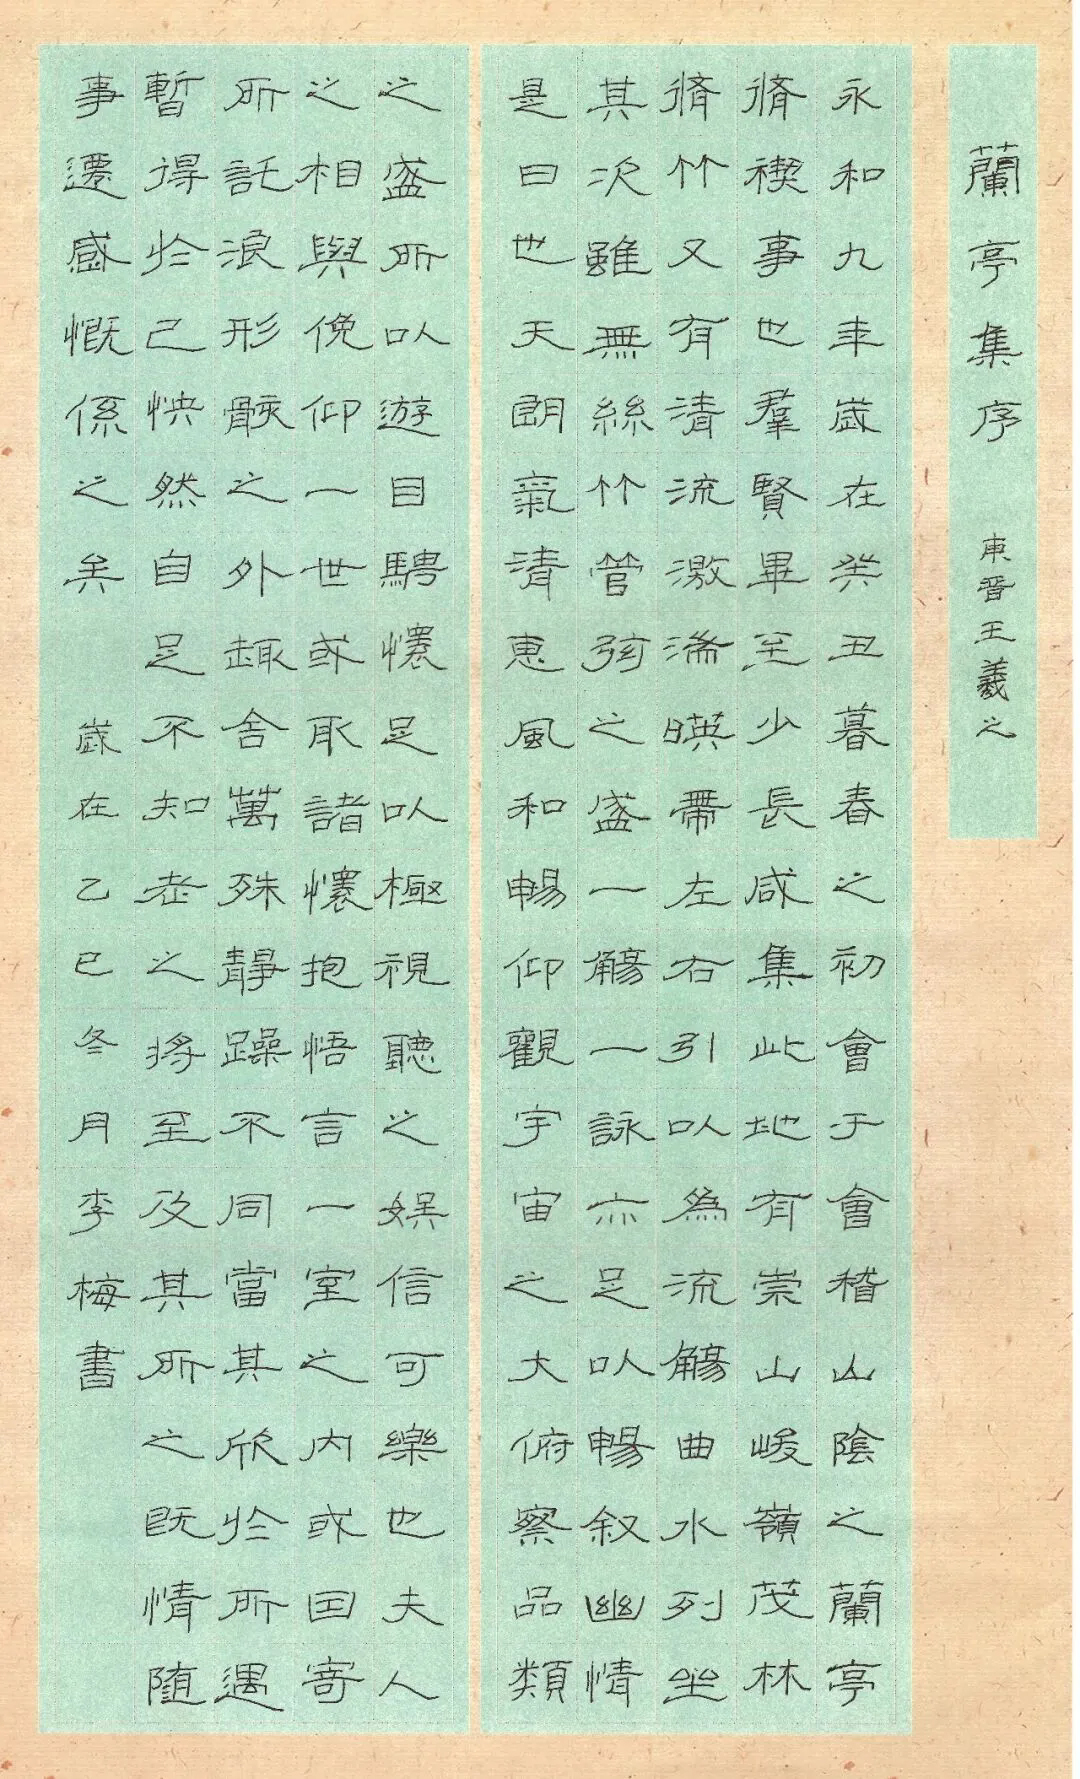 蘭亭集序 東晋王羲之
永和九年歲在癸丑暮春之初會于會稽山陰之蘭亭
脩禊事也羣賢畢至少長咸集此地有崇山峻嶺茂林
脩竹又有清流激湍暎帶左右引以為流觴曲水列坐
其次雖無絲竹管弦之盛一觴一詠亦足以暢叙幽情
是日也天朗氣清惠風和暢仰觀宇宙之大俯察品類
之盛所以遊目騁懷足以極視聽之娛信可樂也夫人
之相與俛仰一世或取諸懷抱悟言一室之內或因寄
所託浪形骸之外趣舍萬殊靜躁不同當其欣於所遇
暫得於己怏然自足不知老之將至及其所之既情隨
事遷感慨係之矣 歲在乙巳冬月李梅書